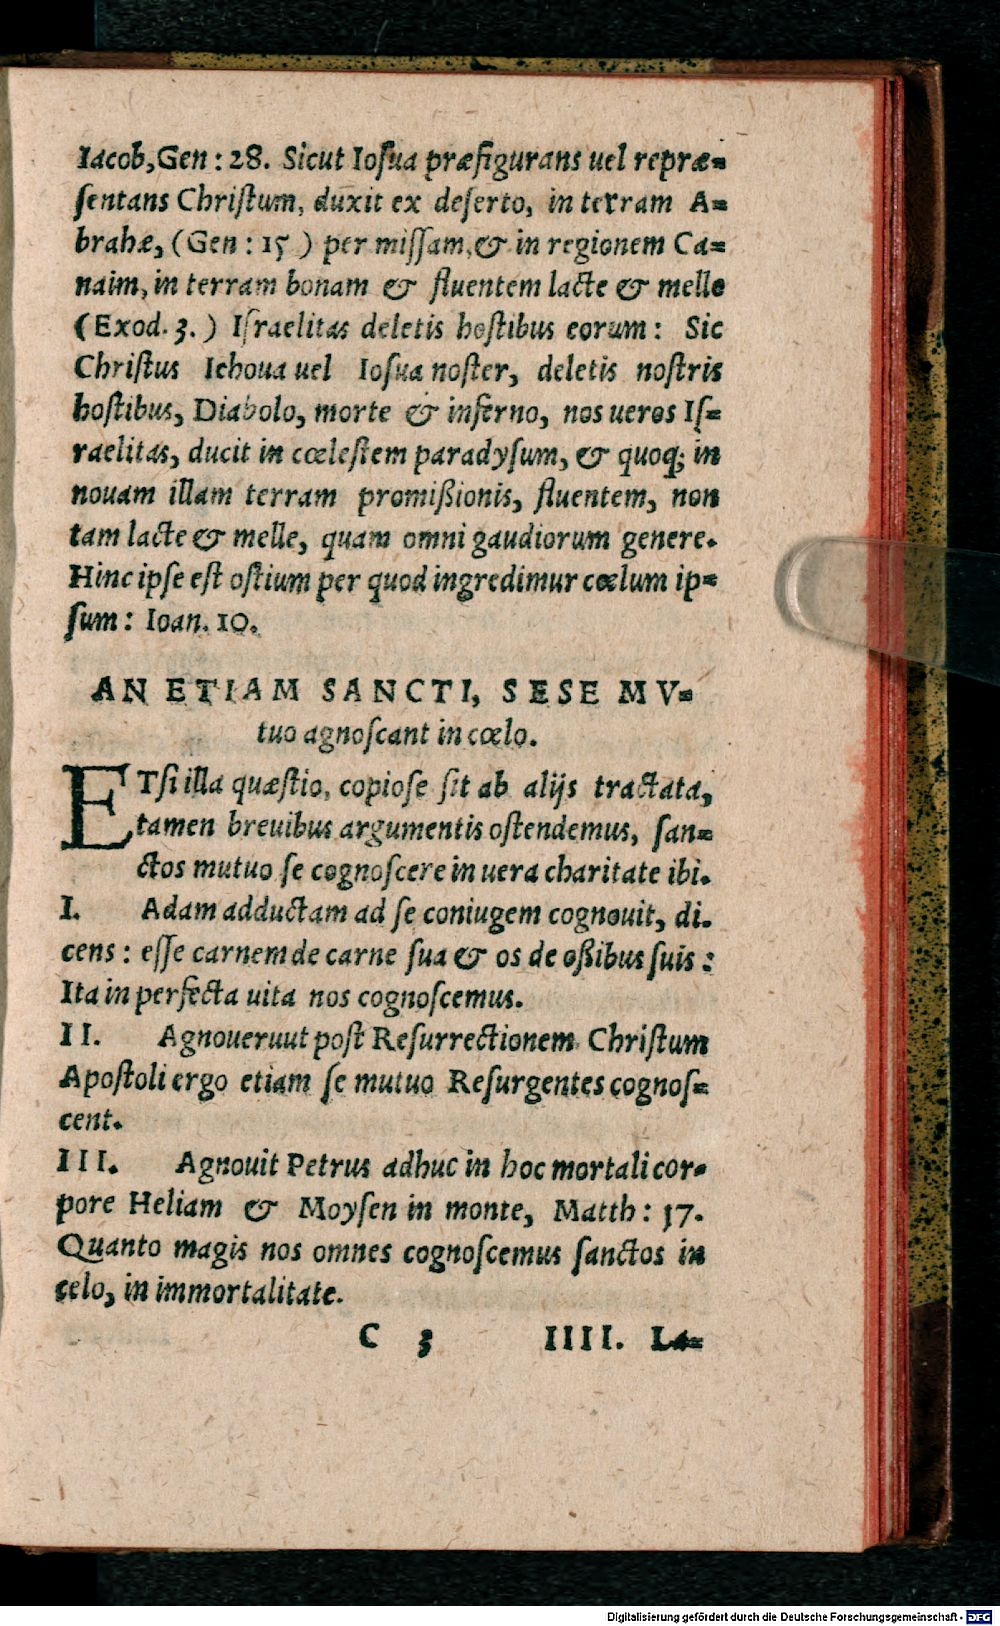 Iacob, Gen : 28. Sicut Ioſua præfigurans uel repræ=
ſentans Chriſtum, duxit ex deſerto, in terram A=
brahæ, (Gen : 15 ) per miſſam, & in regionem Ca=
naim, in terram bonam & fluentem lacte & melle
(Exod. 3. ) Iſraelitas deletis hoſtibus eorum : Sic
Chriſtus Iehoua uel Ioſua noſter, deletis noſtris
hoſtibus, Diabolo, morte & inferno, nos ueros Iſ=
raelitas, ducit in cœleſtem paradyſum, & quoq; in
nouam illam terram promißionis, fluentem, non
tam lacte & melle, quam omni gaudiorum genere.
Hinc ipſe eſt oſtium per quod ingredimur cœlum ip=
ſum : Ioan. 10.
AN ETIAM SANCTI, SESE MV=
tuo agnoſcant in cœlo.
ETſi illa quæſtio, copioſe ſit ab alijs tractata,
tamen breuibus argumentis oſtendemus, ſan=
ctos mutuo ſe cognoſcere in uera charitate ibi.
I. Adam adductam ad ſe coniugem cognouit, di.
cens : eſſe carnem de carne ſua & os de oßibus ſuis :
Ita in perfecta uita nos cognoſcemus.
II. Agnoueruut poſt Reſurrectionem Chriſtum
Apoſtoli ergo etiam ſe mutuo Reſurgentes cognoſ=
cent.
III. Agnouit Petrus adhuc in hoc mortali cor=
pore Heliam & Moyſen in monte, Matth : 17.
Quanto magis nos omnes cognoſcemus ſanctos in
celo, in immortalitate.
C 3 IIII. La=
Digitalisierung gefördert durch die Deutsche Forschungsgemeinschaft - DFG